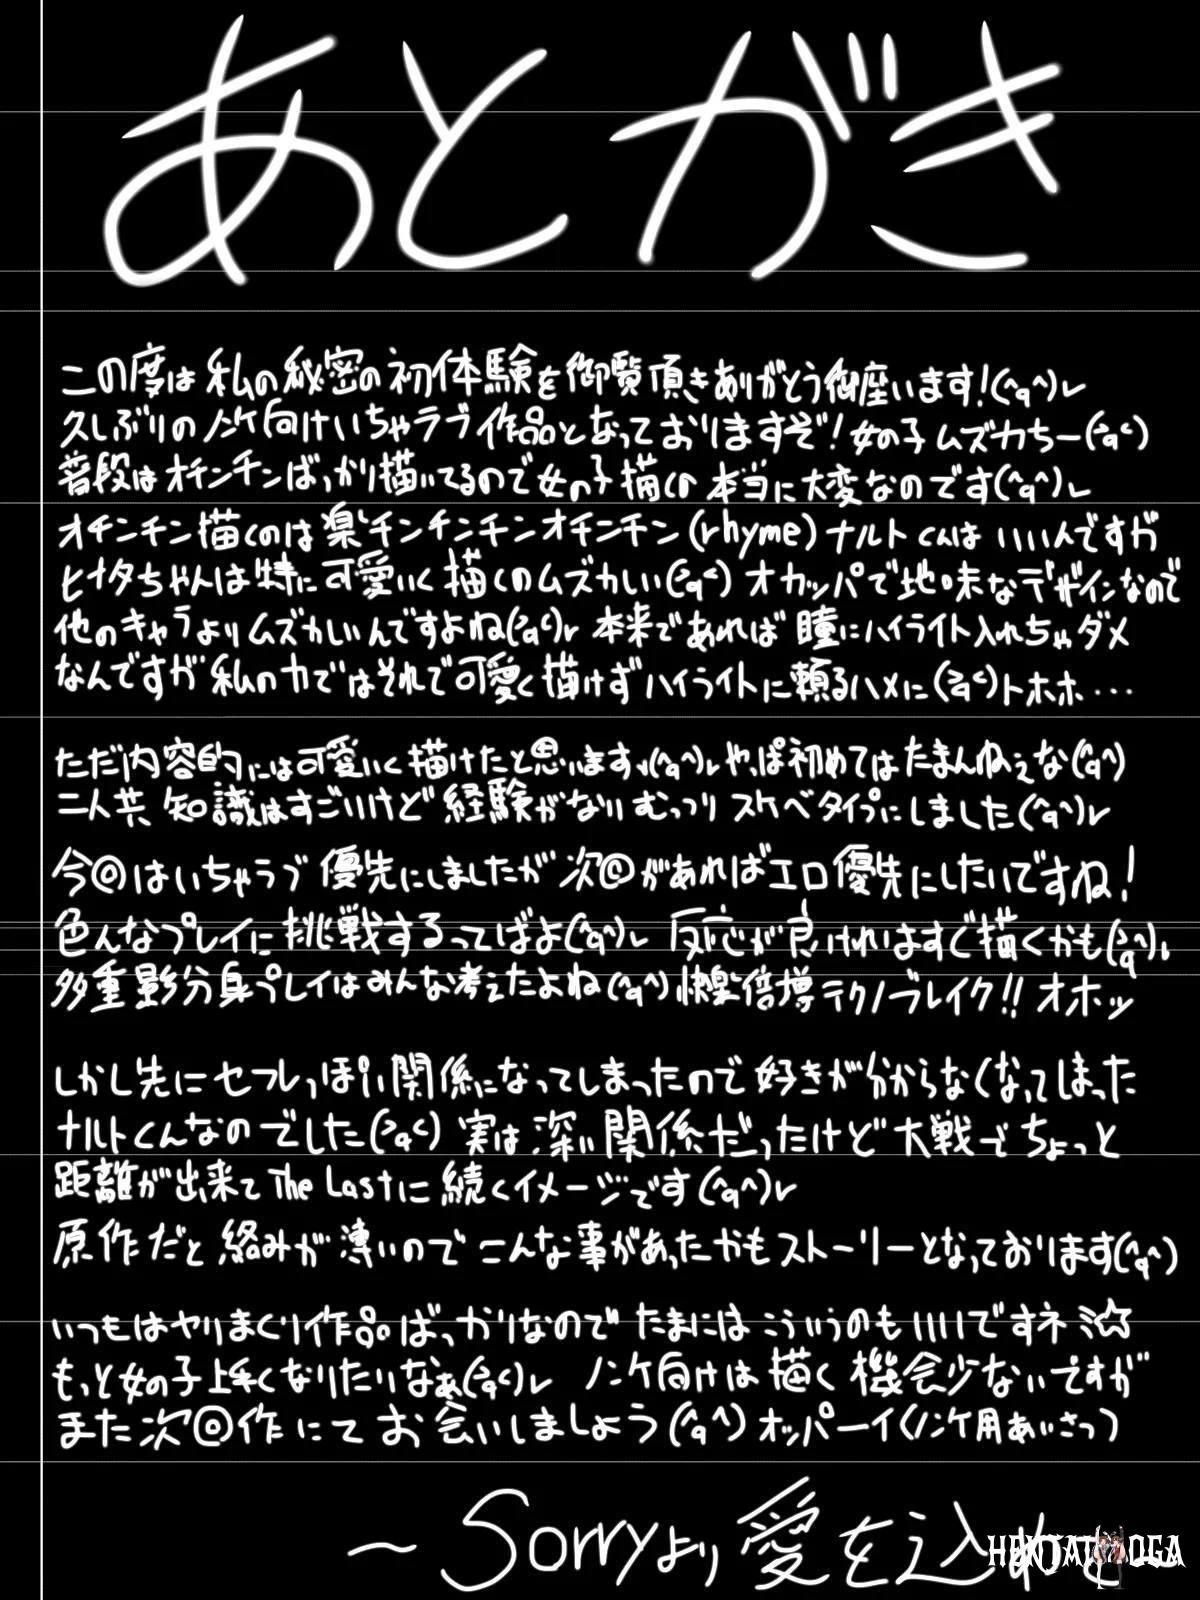 あとがき
この度は私の秘密の初体験を御覧頂きありがとう御座います!(^q^)レ
久しぶりのノンケ向けいちゃラブ作品となっておりますぞ!女の子ムズカちー(>q<)
普段はオチンチンばっかり描いてるので女の子描くの本当に大変なのです(^q^)レ
オチンチン描くのは楽チンチンチンオチンチン(rhyme)ナルトくんはいいんですが
ヒナタちゃんは特に可愛いく描くのムズカしい(>q<)オカッパで地味なデザインなので
他のキャラよりムズカしいんですよね(>q<)レ本来であれば瞳にハイライト入れちゃダメ
なんですが私の力ではそれで可愛く描けずハイライトに頼るハメに(>q<)トホホ…
ただ内容的には可愛いく描けたと思いますヽ(^q^)レやっぱ初めてはたまんねぇな(^q^)
二人共知識はすごいけど経験がないむっつりスケベタイプにしました(^q^)レ
今回はいちゃラブ優先にしましたが次回があればエロ優先にしたいですね!
色んなプレイに挑戦するってばよ(^q^)レ反応が良ければすぐ描くかも(>q^)レ
多重影分身プレイはみんな考えたよね(^q^)快楽倍増テクノブレイク!!オホッ
しかし先にセフレっぽい関係になってしまったので好きが分からなくなってしまった
ナルトくんなのでした(>q<)実は深い関係だったけど大戦でちょっと
距離が出来てThe Lastに続くイメージです(^q^)レ
原作だと絡みが薄いのでこんな事があったかもストーリーとなっております(^q^)
いつもはヤリまくり作品ばっかりなのでたまにはこういうのもいいですネ☆
もっと女の子上手くなりたいなぁ(>q<)レ ノンケ向けは描く機会少ないですが
また次回作にてお会いしましょう(^q^)オッパーイ(ノンケ用あいさつ)
～Sorryより愛を込めて
HENTAI OGA